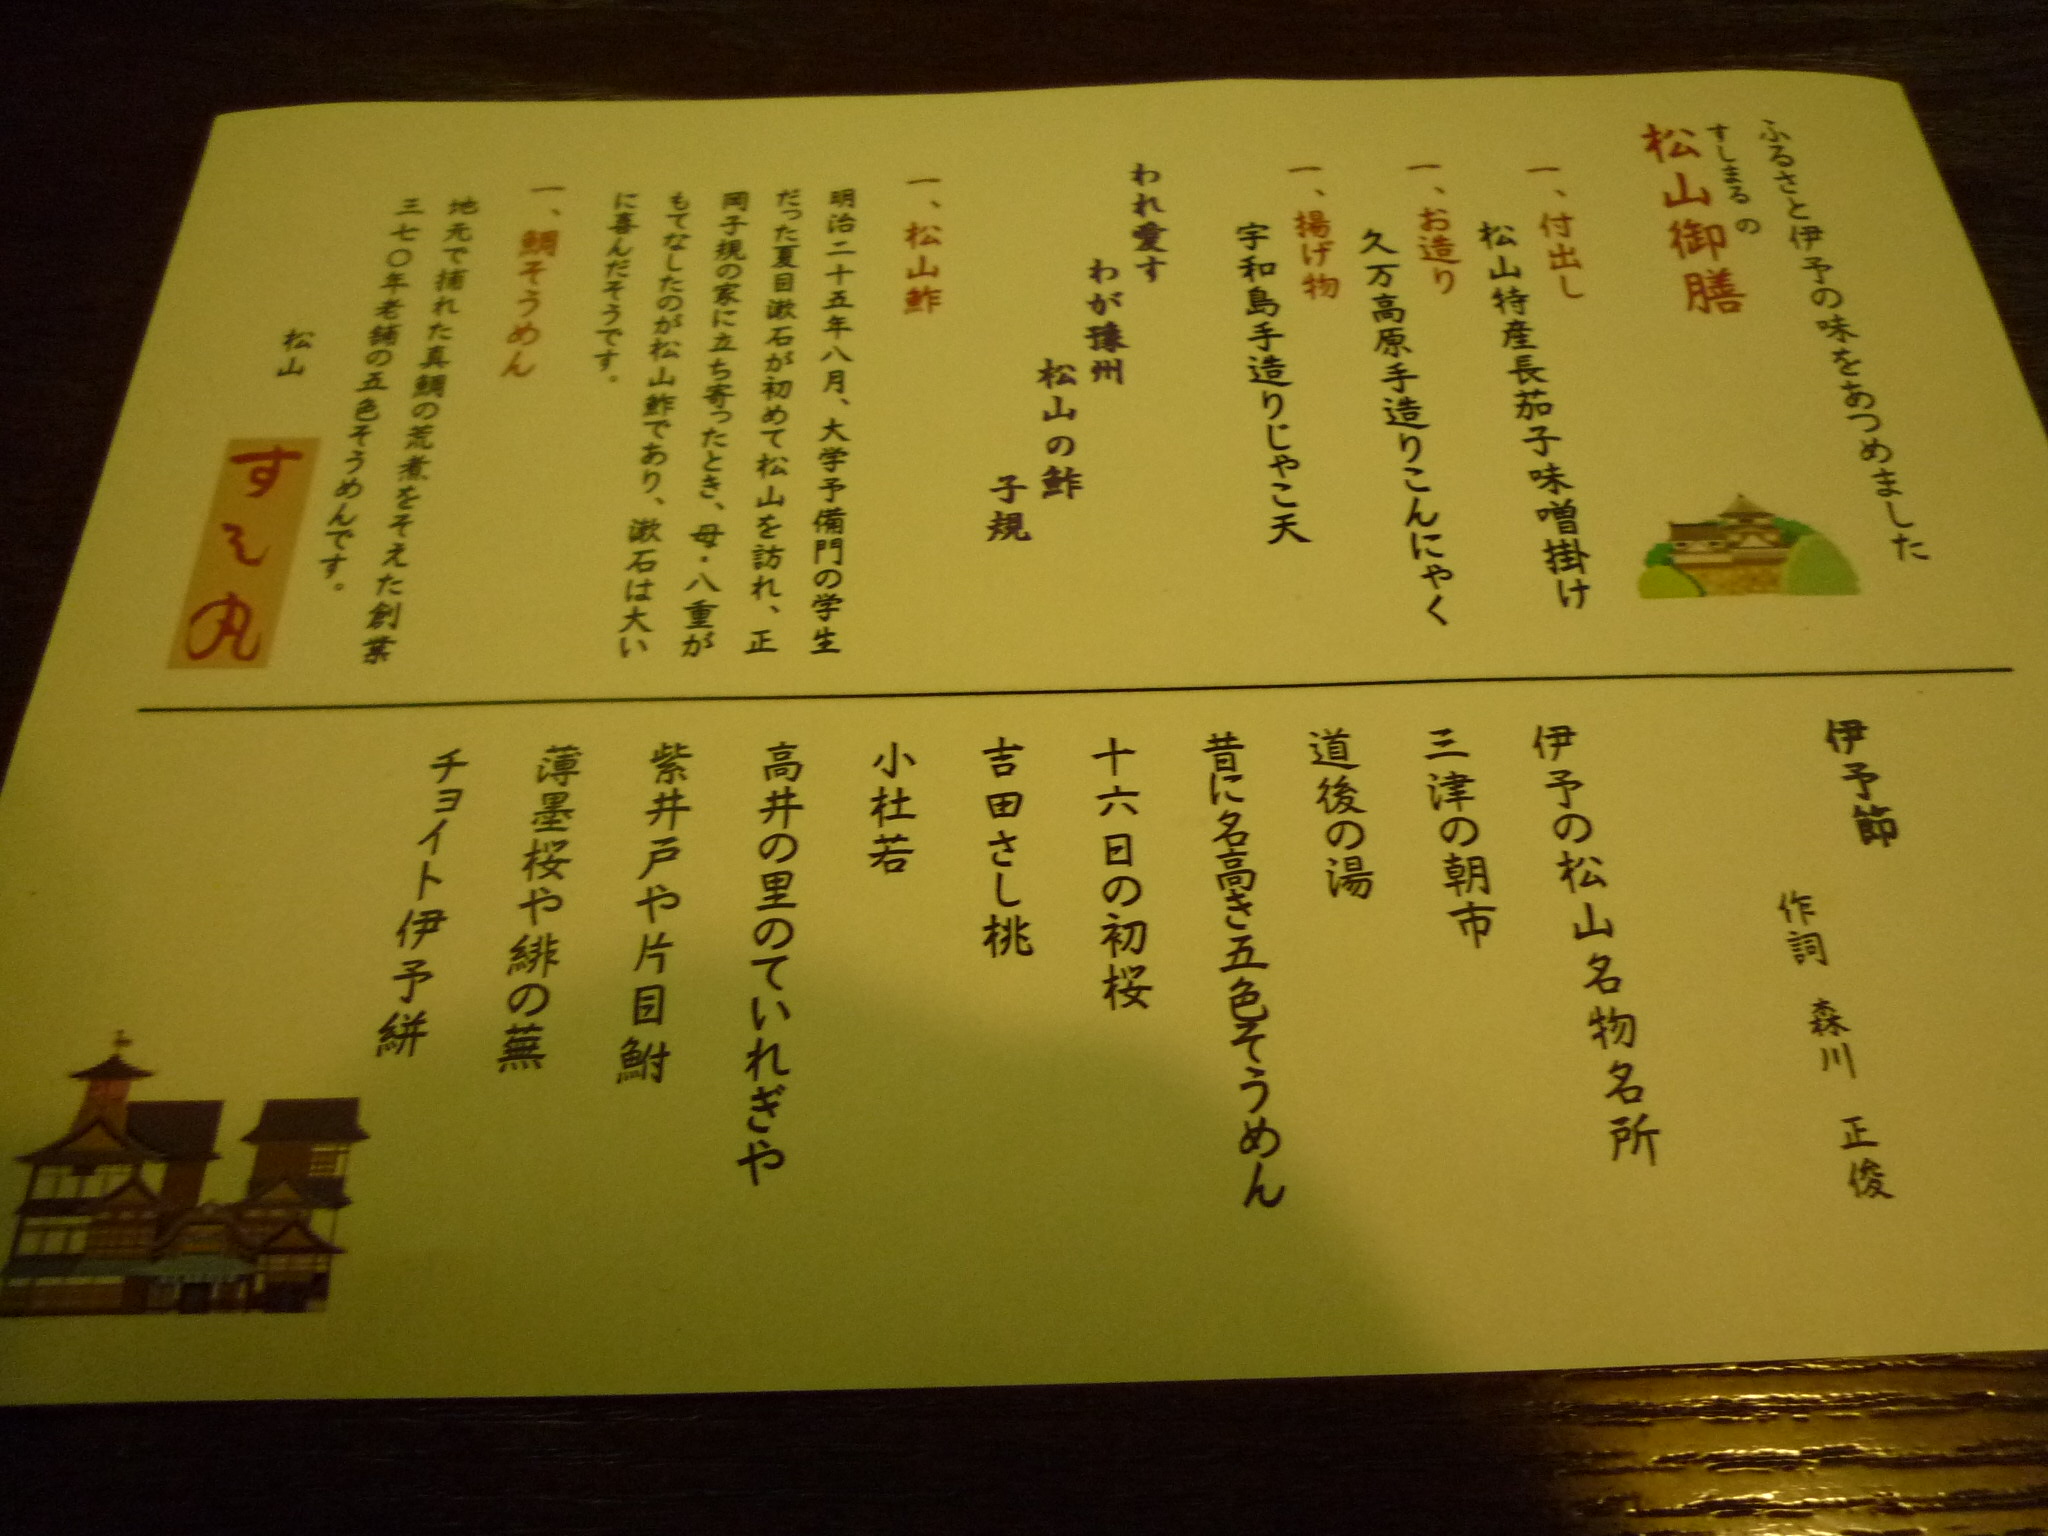 ふるさと伊予の味をあつめました
すしまるの
松山御膳
一、付出し
松山特産長茄子味噌掛け
一、お造り
久万高原手造りこんにゃく
一、揚げ物
宇和島手造りじゃこ天
われ愛す
わが豫州
松山の鮓
子規
一、松山鮓
明治二十五年八月、大学予備門の学生
だった夏目漱石が初めて松山を訪れ、正
岡子規の家に立ち寄ったとき、母・八重が
もてなしたのが松山鮓であり、漱石は大い
に喜んだそうです。
一、鯛そうめん
地元で捕れた真鯛の荒煮をそえた創業
三七〇年老舗の五色そうめんです。
松山
すし丸
伊予節
作詞 森川 正俊
伊予の松山名物名所
三津の朝市
道後の湯
昔に名高き五色そうめん
十六日の初桜
吉田さし桃
小杜若
高井の里のていれぎや
紫井戸や片目鮒
薄墨桜や緋の蕪
チョイト伊予絣